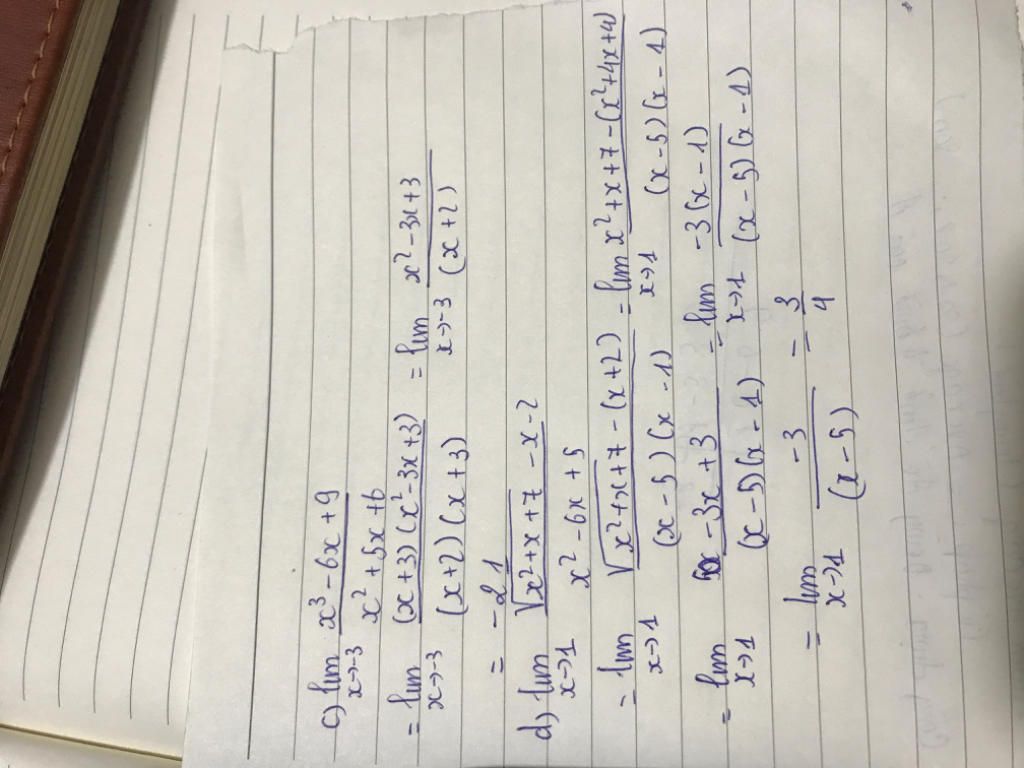 c) lim x→-3 (x³ - 6x + 9)/(x² + 5x + 6)
= lim x→-3 ((x+3)(x² - 3x + 3))/((x+2)(x+3)) = lim x→-3 (x² - 3x + 3)/(x+2)
= -21
d) lim x→1 (√(x² + x + 7) - x - 2)/(x² - 6x + 5)
= lim x→1 (√(x² + x + 7) - (x+2))/((x-5)(x-1)) = lim x→1 (x² + x + 7 - (x² + 4x + 4))/((x-5)(x-1))
= lim x→1 (-3x + 3)/((x-5)(x-1)) = lim x→1 (-3(x-1))/((x-5)(x-1))
= lim x→1 (-3)/((x-5)) = - 3/4